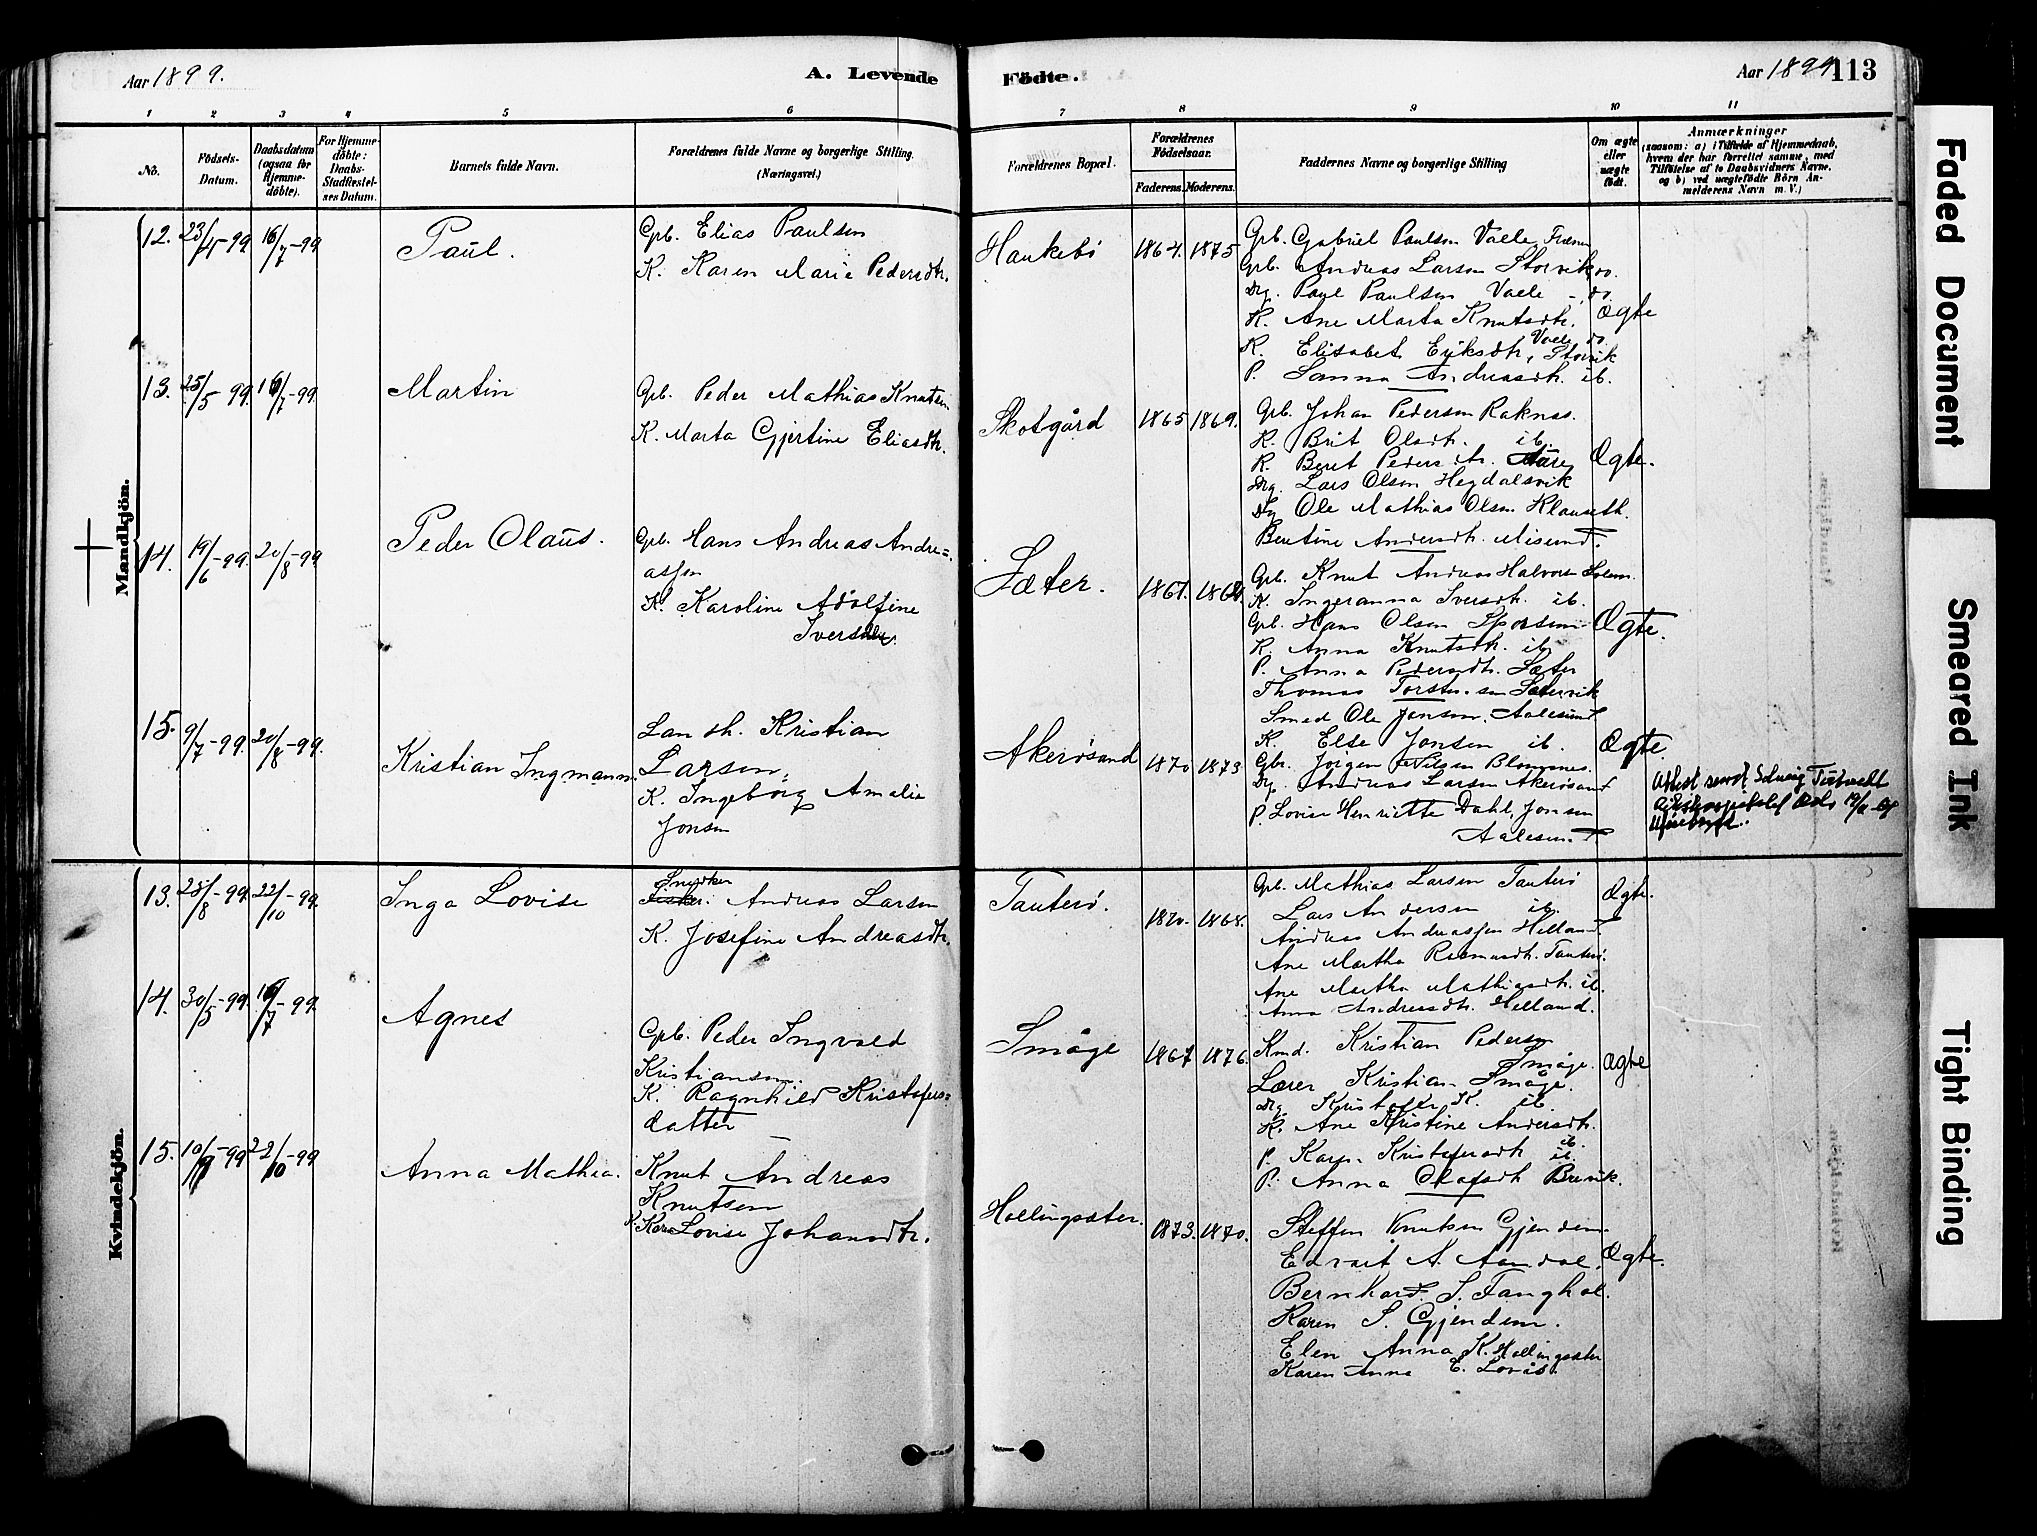 Aar 1899.
A. Levende
Födte.
Aar 1899
113
1 2 3 4 5 6 7 8 9 10 11
No.
Födsels-
Datum.
Daabsdatum
(ogsaa for
Hjemme-
döbte).
For Hjemme-
döbte:
Daabs-
Stadfæstel-
ses Datum.
Barnets fulde Navn.
Forældrenes fulde Navne og borgerlige Stilling.
(Næringsvei.)
Forældrenes Bopæl.
Forældrenes
Födselsaar.
Faderens. Moderens.
Faddernes Navne og borgerlige Stilling
Om ægte
eller
uægte
födt.
Anmærkninger
(saasom: a) i Tilfælde af Hjemmedaab,
hvem der har forrettet samme, med
Tilföielse af to Daabsvidners Navne,
og b) ved uægtefödte Börn An-
melderens Navn m. V.)
Mandkjön.
12. 23/4-99 16/7-99
Paul.
Gpb. Elias Paulsen
K. Karen Marie Pedersdtr.
Haukebö
1864. 1875
Gpb. Gabriel Paulsen Vaele
Gpb. Andreas Larsen Storvik do.
Dg. Paul Paulsen Vaele - do.
K. Ane Marta Knutsdtr.
Vaele do
K. Elisabet Eriksdtr, Storvik
P. Sanna Andreasdtr. ib.
Ægte
13. 25/5 99. 16/7-99
Martin
Gpb. Peder Mathias Knutsen
K. Marta Gjertine Eliasdtr.
Skotgård
1865 1869.
Gpb. Johan Pedersen Raknes.
K. Brit Olsdtr. ib.
K. Beret Pedersdtr. Aure
Dg. Lars Olsen Hegdalsvik
Dg Ole Mathias Olsen Klauseth.
Bertine Andersdtr. Misund.
Ægte.
14. 19/6-99. 20/8-99
Peder Olaus.
Gpb. Hans Andreas Andre=
assen
K. Karoline Adolfine
Iversdtr.
Sæter.
1867.
Gpb. Knut Andreas Halvorsen Solem.
K. Ingeranna Iversdtr. ib.
Gpb. Hans Olsen
K. Anna Knutsdtr. ib.
P. Anna Pedersdtr. Sæter
Thomas Torstensen Sætervik
Ægte.
15. 9/7-99. 20/8-99.
Kristian Ingmann.
Landh. Kristian
Larsen,
K. Ingeborg Amalie
Jonsen
Akerösund
1870 1873
Smed Ole Jonsen. Aalesund
K. Else Jonsen ib.
Gbr. Jörgen Nilsen Blomnes.
Dg. Andreas Larsen Akerösund
P. Lovise Henriette Dahl, Jonsen
Aalesund
Ægte
Attest sendt Solveig
Kvindekjön.
13. 25/8-99. 22/10-99.
Inga Lovise
Snedker
Fisker. Andreas Larsen
K. Josefine Andreasdtr.
Tauterö.
1870. 1868.
Gpb. Mathias Larsen Tauterö
Lars Andersen ib.
Andreas Andreassen Helland.
Ane Martha Rasmusdtr. Tauterö.
Ane Martha Mathiasdtr. ib.
Anna Andreasdtr. Helland.
Ægte.
14. 30/5-99. 16/7-99.
Agnes
Gpb. Peder Ingvald
Kristiansen.
K. Ragnhild Kristofers=
datter
Småge
1867 1876.
Kmd. Kristian Pedersen
Småge.
Lærer Kristian Småge.
Dg. Kristoffer K. ib.
K. Ane Kristine Andersdtr.
ib.
P. Karen Kristofersdtr ib.
P. Anna Olafsdtr Brevik.
Ægte
15. 10/9-99 22/10-99
Anna Mathea.
Knut Andreas
Knutsen
K. Karen Lovise Johansdtr.
Hollingsæter.
1873. 1870.
Steffen Knutsen Gjendem
Edvart A. Aandal.
Bernhard. S. Tanghol.
Karen S. Gjendem.
Elen Anna K. Hollingsæter
Karen Anna E. Lovås.
Ægte.
Faded Document
Smeared Ink
Tight Binding